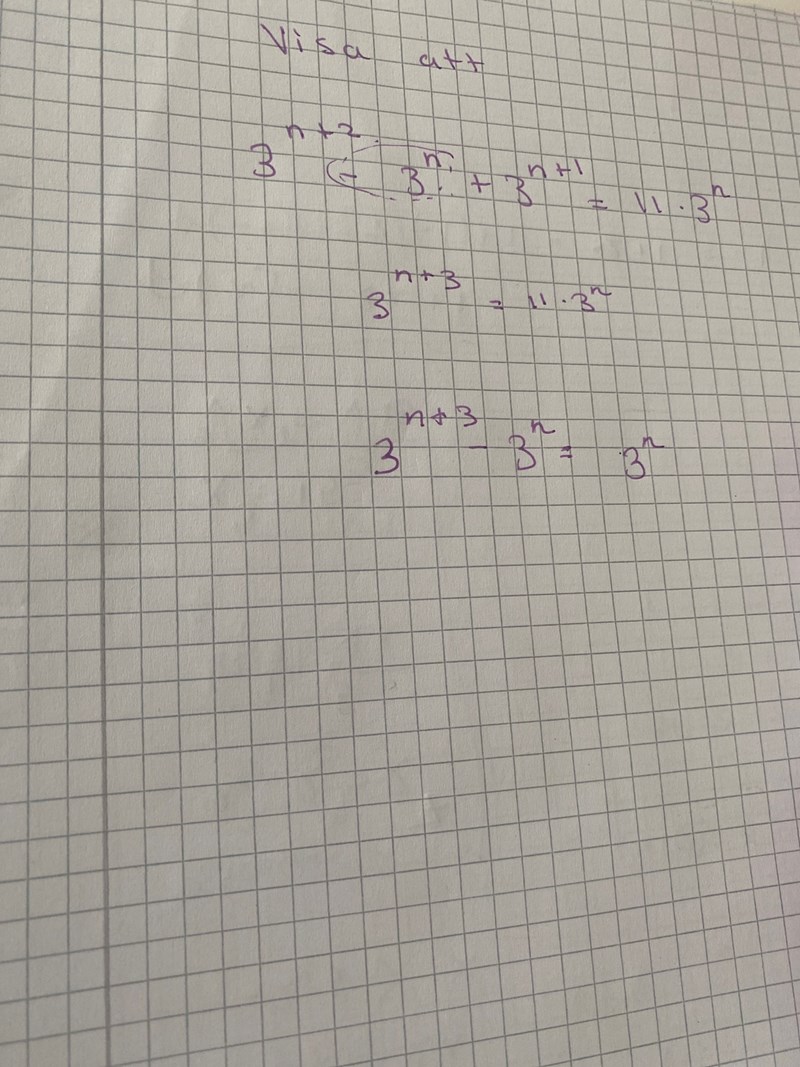 Visa att
3^{n+2} - 3^n + 3^{n+1} = 11 · 3^n
3^{n+3} = 11 · 3^n
3^{n+3} - 3^n = · 3^n